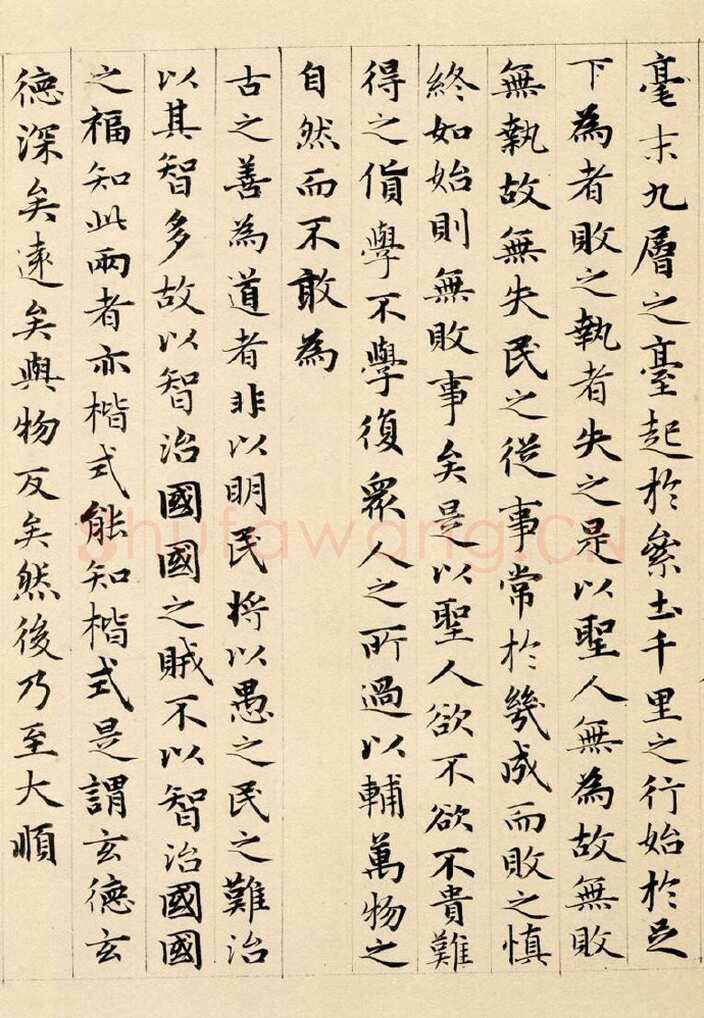 毫末九層之臺起於絫土千里之行始於足
下為者敗之執者失之是以聖人無為故無敗
無執故無失民之從事常於幾成而敗之慎
終如始則無敗事矣是以聖人欲不欲不貴難
得之貨學不學復眾人之所過以輔萬物之
自然而不敢為
古之善為道者非以明民將以愚之民之難治
以其智多故以智治國國之賊不以智治國國
之福知此兩者亦楷式能知楷式是謂玄德玄
德深矣遠矣與物反矣然後乃至大順
shufawang.CN